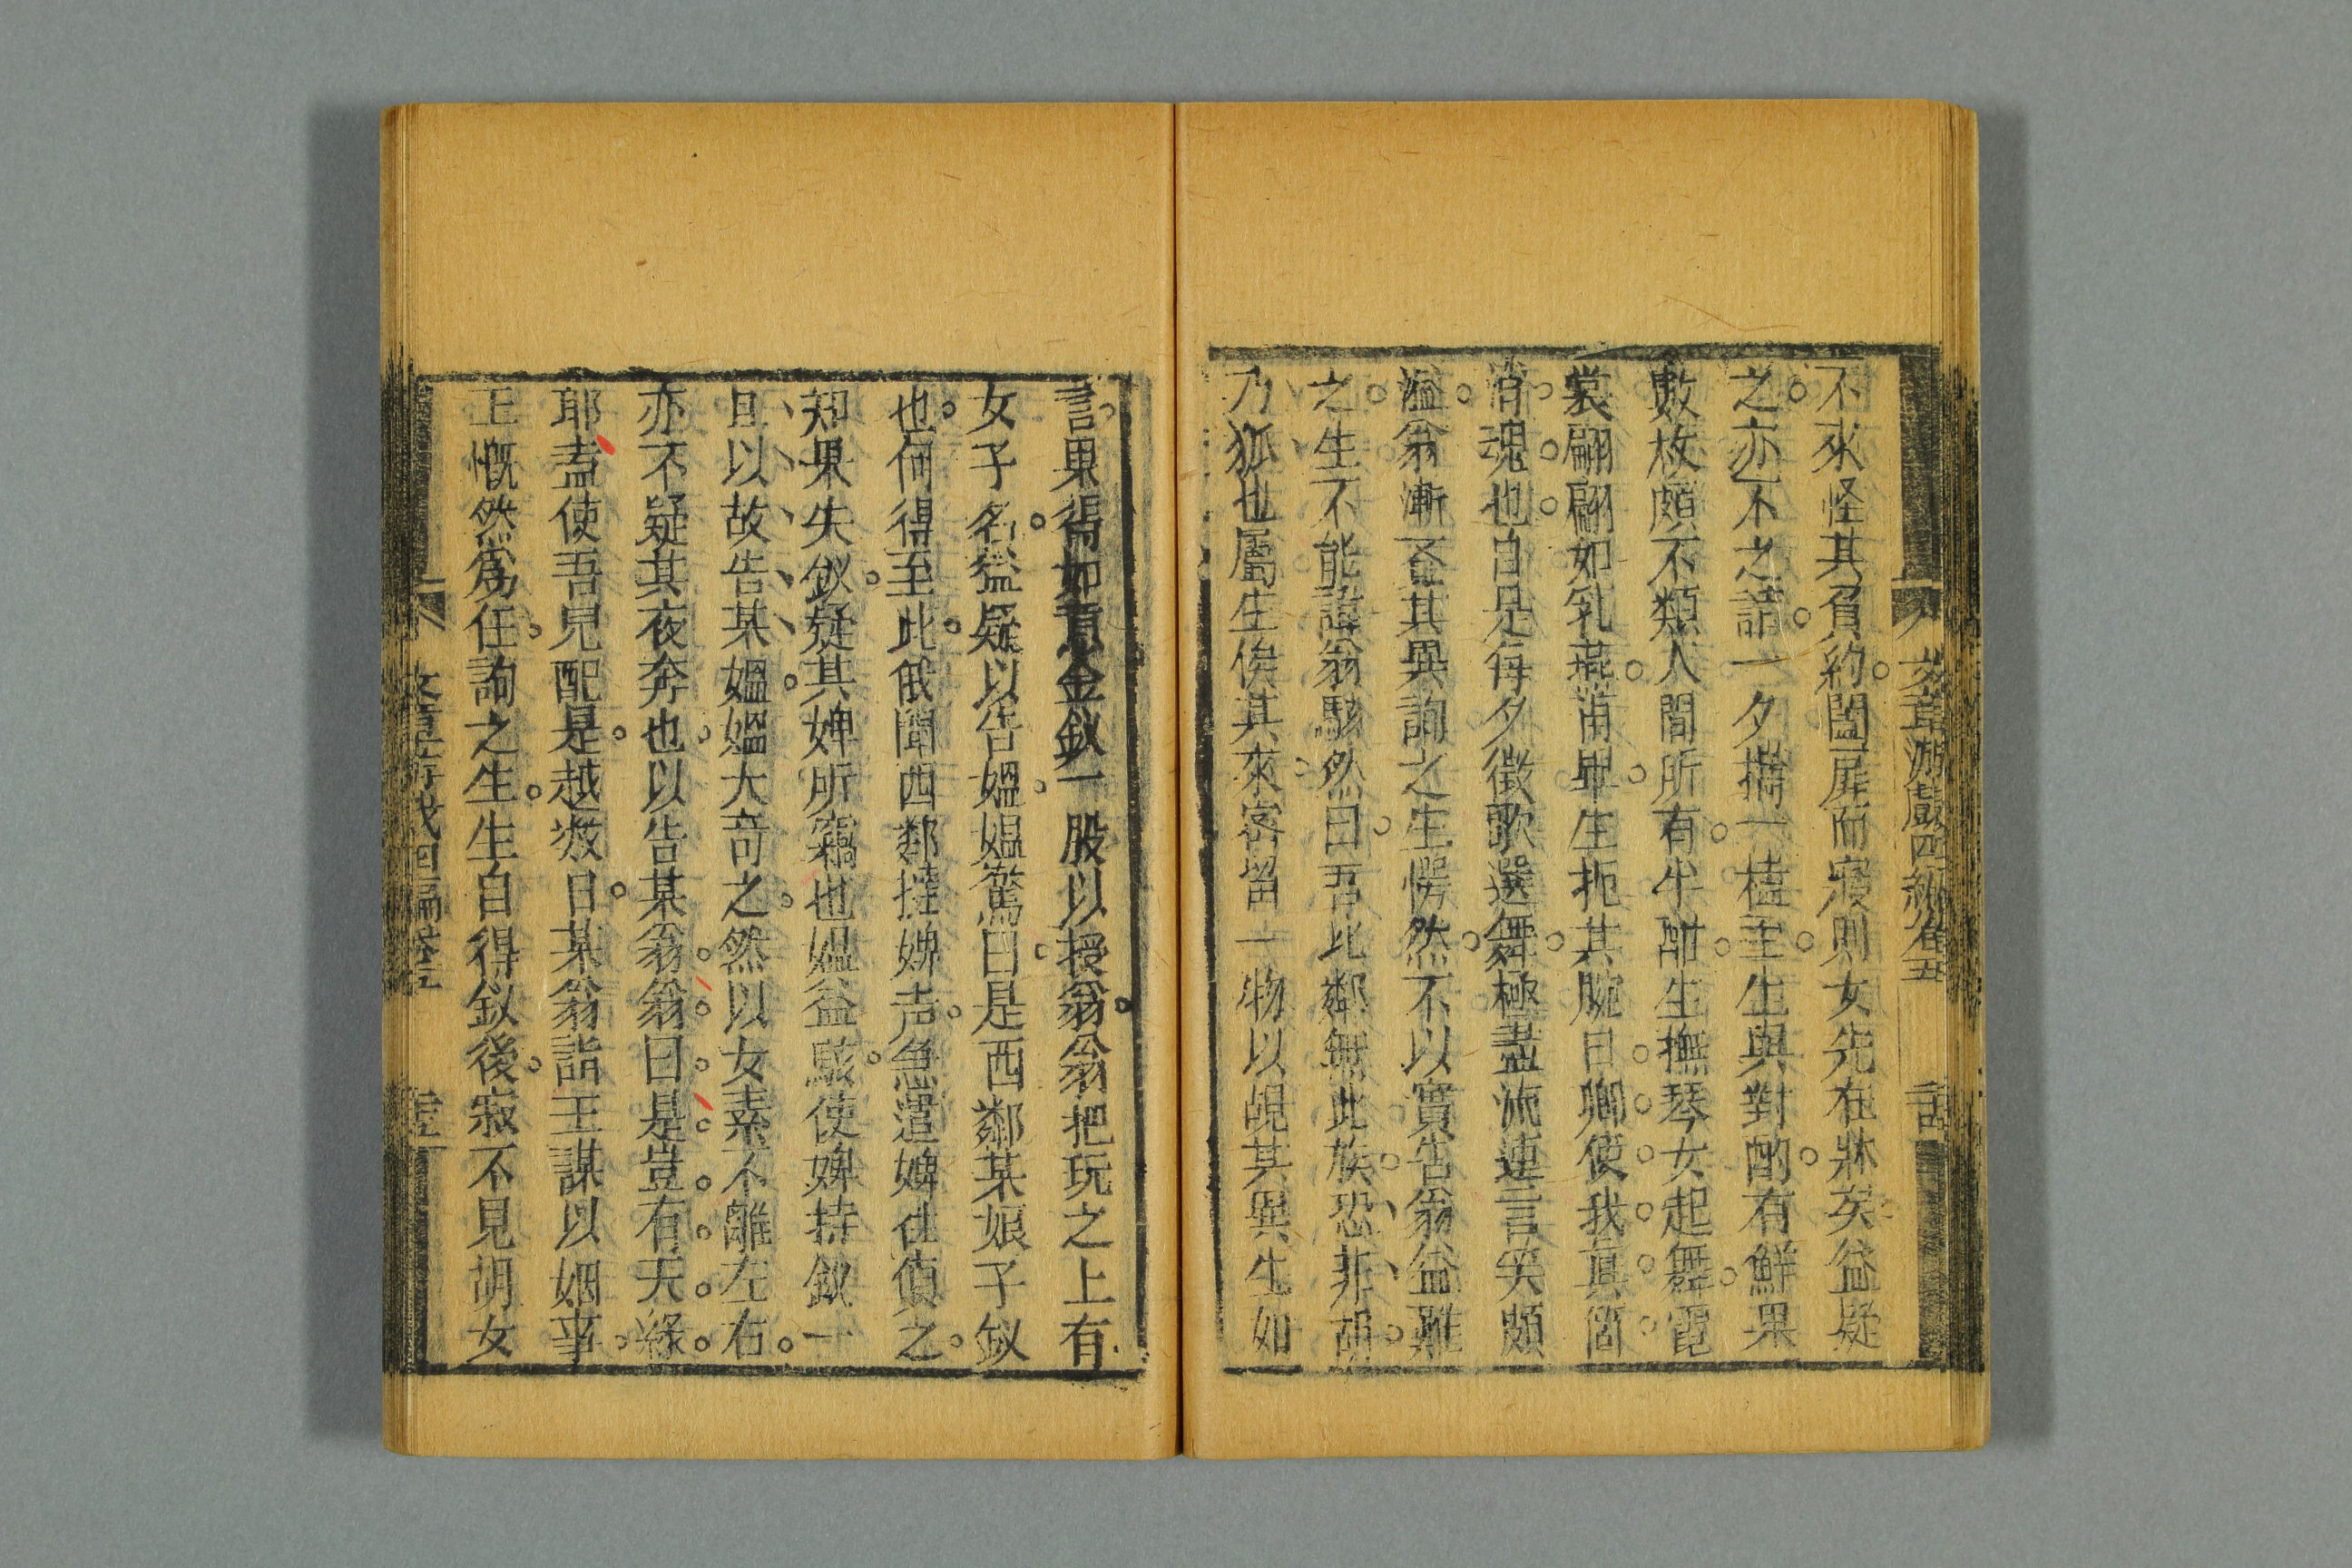 文章游戲四編卷五
不來怪其負約闔扉而寢則女先在牀矣益疑
之亦不之詰一夕攜一榼至生與對酌有鮮果
數枚頗不類人間所有半酣生撫琴女起舞霓
裳翩翩如乳燕舞畢生扼其腕曰卿使我真箇
消魂也自是每夕徵歌選舞極盡流連言笑頗
溢翁漸百其異詢之生愕然不以實告翁益難
之生不能諱翁駭然曰吾比鄰無此族恐非胡
乃狐也屬生俟其來密留一物以覘其異生如
言果得如意金釵一股以授翁翁把玩之上有
女子名益疑以告媼媼驚曰是西鄰某娘子釵
也何得至此俄聞西鄰撻婢声急遣婢往偵之
知果失釵疑其婢所竊也媼益駭使婢持釵一
且以故告某媼媼大奇之然以女素不離左右
亦不疑其夜奔也以告某翁翁曰是豈有天緣
耶盍使吾兒配是越数日某翁詣王謀以姻事
王慨然爲任詢之生生自得釵後寂不見胡女
文章游戲四編卷五